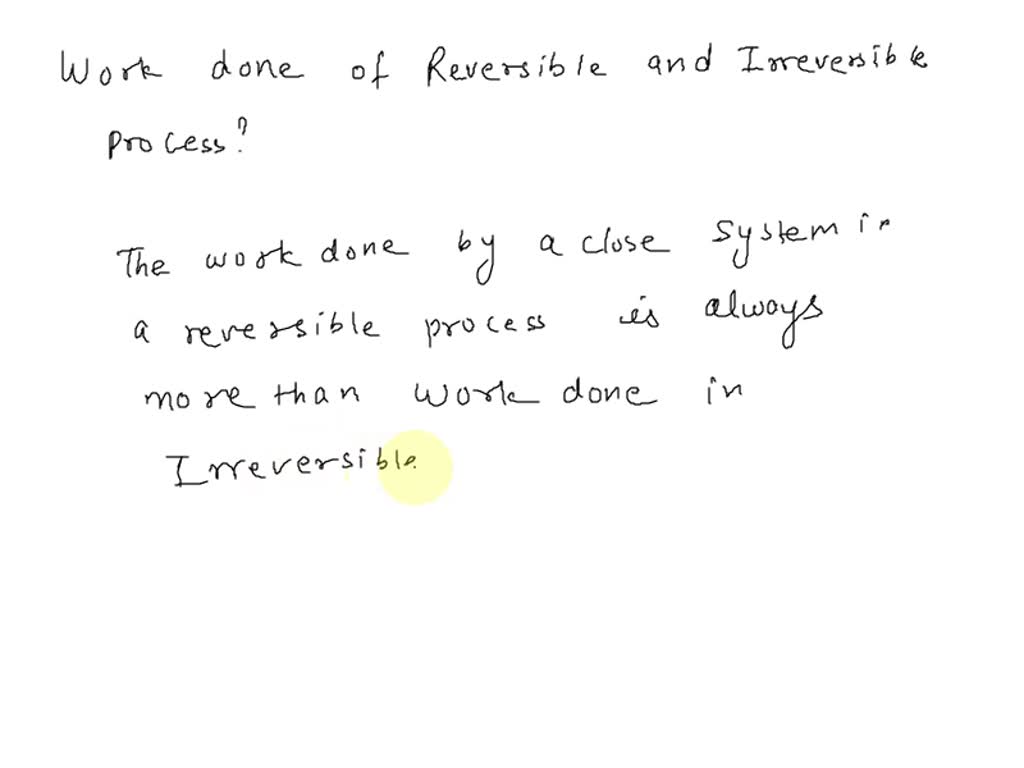 Work done of Reversible and Irreversible
process?
The work done by a close system in
a reversible process is always
more than work done in
Irreversible